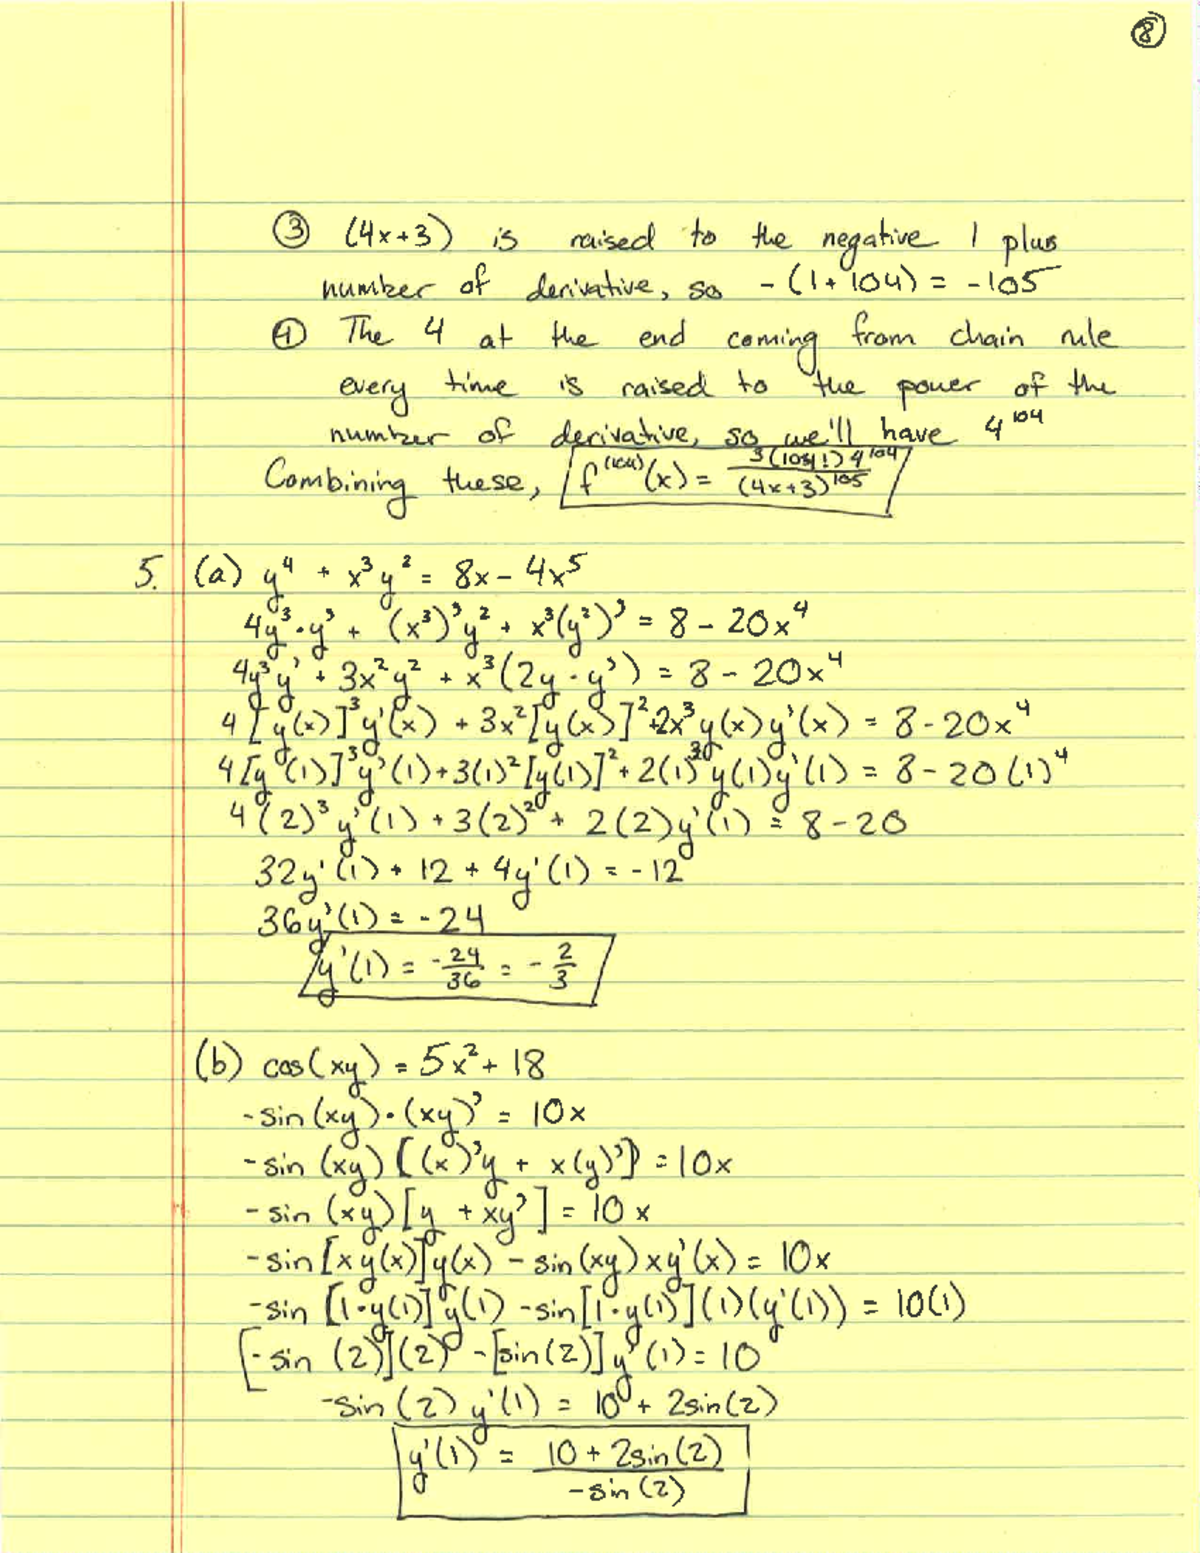 ⑧
③ (4x+3) is raised to the negative 1 plus
number of derivative, so -(1+104) = -105
④ The 4 at the end coming from chain rule
every time is raised to the power of the
number of derivative, so we'll have 4¹⁰⁴
Combining these, f⁽¹⁰⁴⁾(x) = 3(104!)4¹⁰⁴/(4x+3)¹⁰⁵
5. (a) y⁴ + x³y² = 8x - 4x⁵
4y³·y' + (x³)'y² + x³(y²)' = 8 - 20x⁴
4y³y' + 3x²y² + x³(2y·y') = 8 - 20x⁴
4[y(x)]³y'(x) + 3x²[y(x)]²+2x³y(x)y'(x) = 8-20x⁴
4[y(1)]³y'(1)+3(1)²[y(1)]²+2(1)³y(1)y'(1) = 8-20(1)⁴
4(2)³y'(1) + 3(2)² + 2(2)y'(1) = 8-20
32y'(1) + 12 + 4y'(1) = -12
36y'(1) = -24
y'(1) = -24/36 = -2/3
(b) cos(xy) = 5x² + 18
-sin(xy)·(xy)' = 10x
-sin(xy)[(x)'y + x(y)'] = 10x
-sin(xy)[y + xy'] = 10x
-sin[xy(x)]y(x) - sin(xy)xy'(x) = 10x
-sin[1·y(1)]y(1) -sin[1·y(1)](1)(y'(1)) = 10(1)
[-sin(2)](2) -[sin(2)]y'(1) = 10
-sin(2)y'(1) = 10 + 2sin(2)
y'(1) = 10 + 2sin(2)/-sin(2)